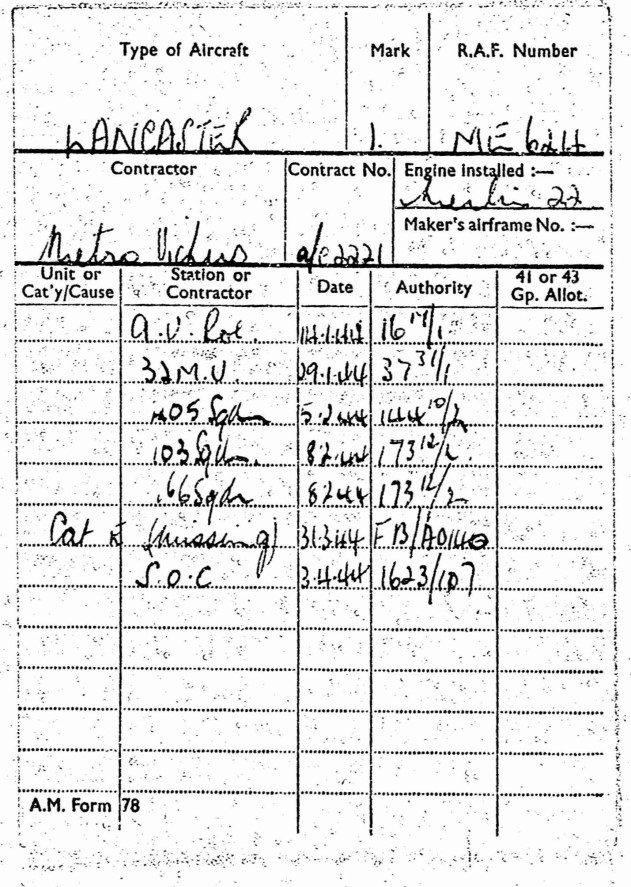 Type of Aircraft Mark R.A.F. Number
LANCASTER 1. ME 624
Contractor Contract No. Engine installed :—
Merlin 22
Maker's airframe No. :—
Metro Vickers a/c 2221
Unit or Cat'y/Cause Station or Contractor Date Authority 41 or 43 Gp. Allot.
A.V. Roe. 14.1.44 16 17/1
32 M.U. 29.1.44 37 31/1
405 Sqdn 5.2.44 144 10/2
103 Sqdn. 8.2.44 173 12/2
166 Sqdn 8.2.44 173 12/2
Cat E (missing) 31.3.44 FB/
S.O.C 3.4.44 1623/107
A.M. Form 78